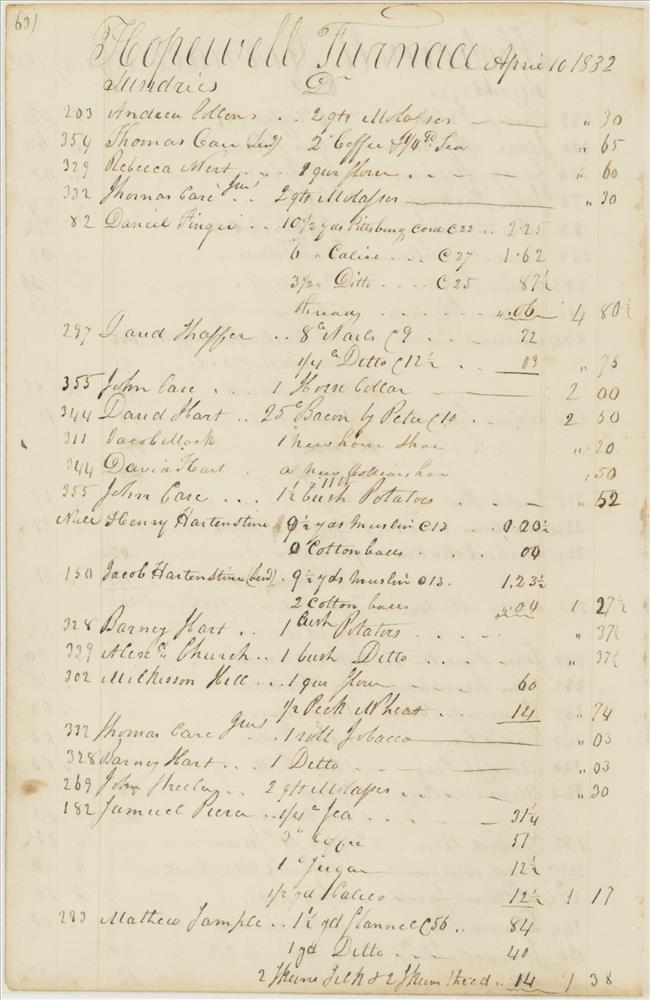 Hopewell Furnace April 10 1832
Sundries Dr
203 Andrew Collens .. 2 qts Molasses — " 30
354 Thomas Care (Sen) 2 " Coffee & 1/4 " Tea " 65
329 Rebecca Wert .. 1 qur flour .. " 60
332 Thomas Care Junr .. 2 qts Molasses — " 30
82 Daniel .. 10 1/2 yds Pittsburg Cord C 22 .. 2.25
6 " Calico ... C 27 1.62
3 1/2 " Ditto .... C 25 87 1/2
thread ..... " .06 4 80 1/2
297 David .. 8 " Nails C 9 . 72
1/4 " Ditto C 12 1/2 .. 03 " 75
355 John Care ... 1 Horse Collar — 2 00
344 David Hart .. 25 " Bacon by Peter C 10 . 2 50
311 Jacob Mock . 1 new horse Shoe " 20
344 David Hart . a new " 50
355 John Care ... 1 1/2 bush Potatoes .. — " 52
Henry Hartenstine 9 1/2 yds Muslin C 13 .. 1.20 1/2
Cotton baces .... 04
150 Jacob Hartenstine (Sen) . 9 1/2 yds Muslin C 13 . 1.23 1/2
2 Cotton baces " .04 1 27 1/2
328 Barney Hart .. 1 bush Potatoes ..... " 37 1/2
339 Alexr Church .. 1 bush Ditto ..... " 37 1/2
302 Wilkisson Hill ... 1 qur flour .. 60
1/2 Peck Wheat ... 14 " 74
332 Thomas Care Junr .. 1 roll Tobacco — " 03
328 Barney Hart ... 1 Ditto .. — " 03
269 John .. 2 qts Molasses .. — " 30
182 Samuel .. 1/4 " Tea .. — 31 1/4
3 " Coffee 51
1 " Sugar 12 1/2
1/2 yd Calico — 12 1/2 1 17
283 Mathew Sample .. 1 1/2 yd flannel C 56 .. 84
1 yd Ditto ... 40
2 Skeins Silk & 2 Skeins thread .. 14 1 38